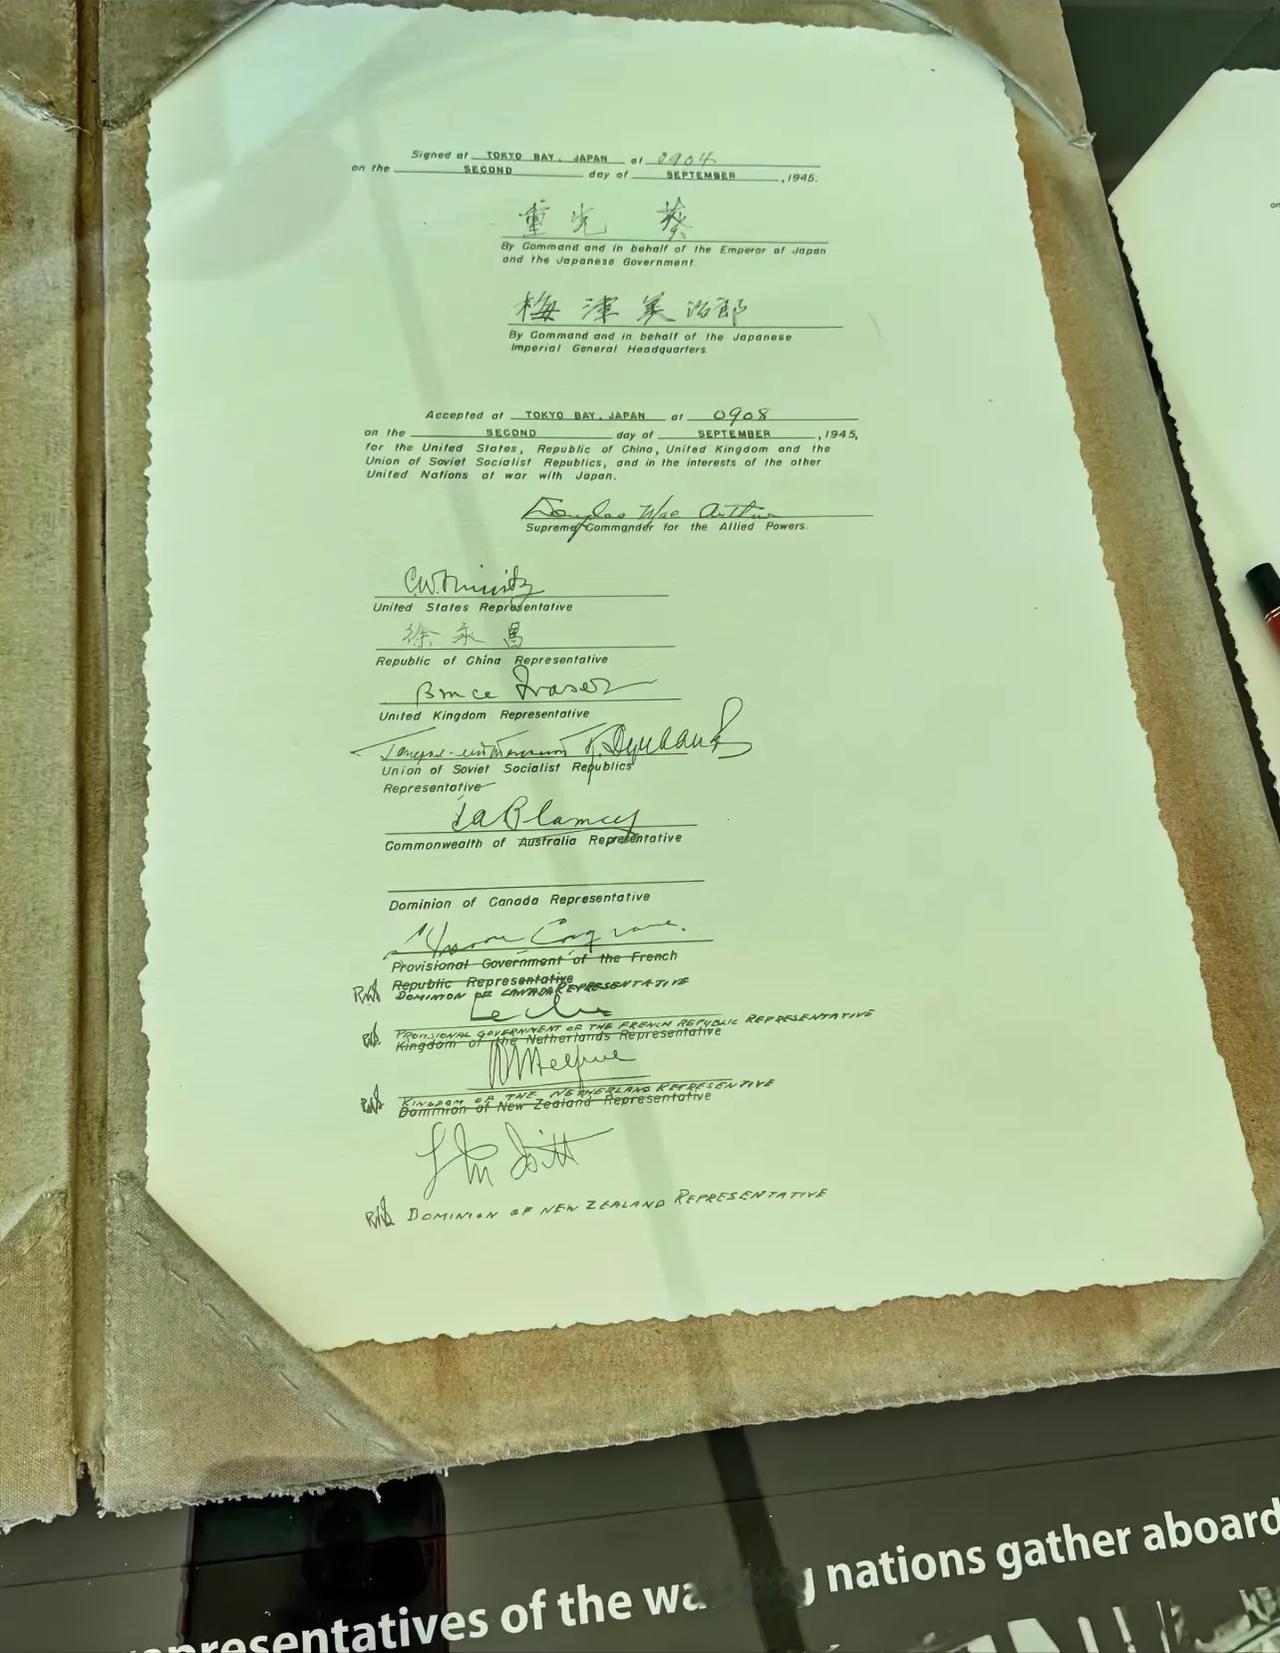 Signed at TOKYO BAY, JAPAN at 0904
on the SECOND day of SEPTEMBER, 1945.
重光 葵
By Command and in behalf of the Emperor of Japan
and the Japanese Government.
梅津美治郎
By Command and in behalf of the Japanese
Imperial General Headquarters.
Accepted at TOKYO BAY, JAPAN at 0908
on the SECOND day of SEPTEMBER, 1945,
for the United States, Republic of China, United Kingdom and the
Union of Soviet Socialist Republics, and in the interests of the other
United Nations at war with Japan.
Douglas MacArthur
Supreme Commander for the Allied Powers.
C.W. Nimitz
United States Representative
徐永昌
Republic of China Representative
Bruce Fraser
United Kingdom Representative
Union of Soviet Socialist Republics
Representative
T a Blamey
Commonwealth of Australia Representative
Dominion of Canada Representative
Moore Cosgrave.
Provisional Government of the French
Republic Representative
DOMINION OF CANADA REPRESENTATIVE
PROVISIONAL GOVERNMENT OF THE FRENCH REPUBLIC REPRESENTATIVE
Kingdom of the Netherlands Representative
KINGDOM OF THE NETHERLAND REPRESENTATIVE
Dominion of New Zealand Representative
DOMINION OF NEW ZEALAND REPRESENTATIVE
on
presentatives of the nations gather aboard